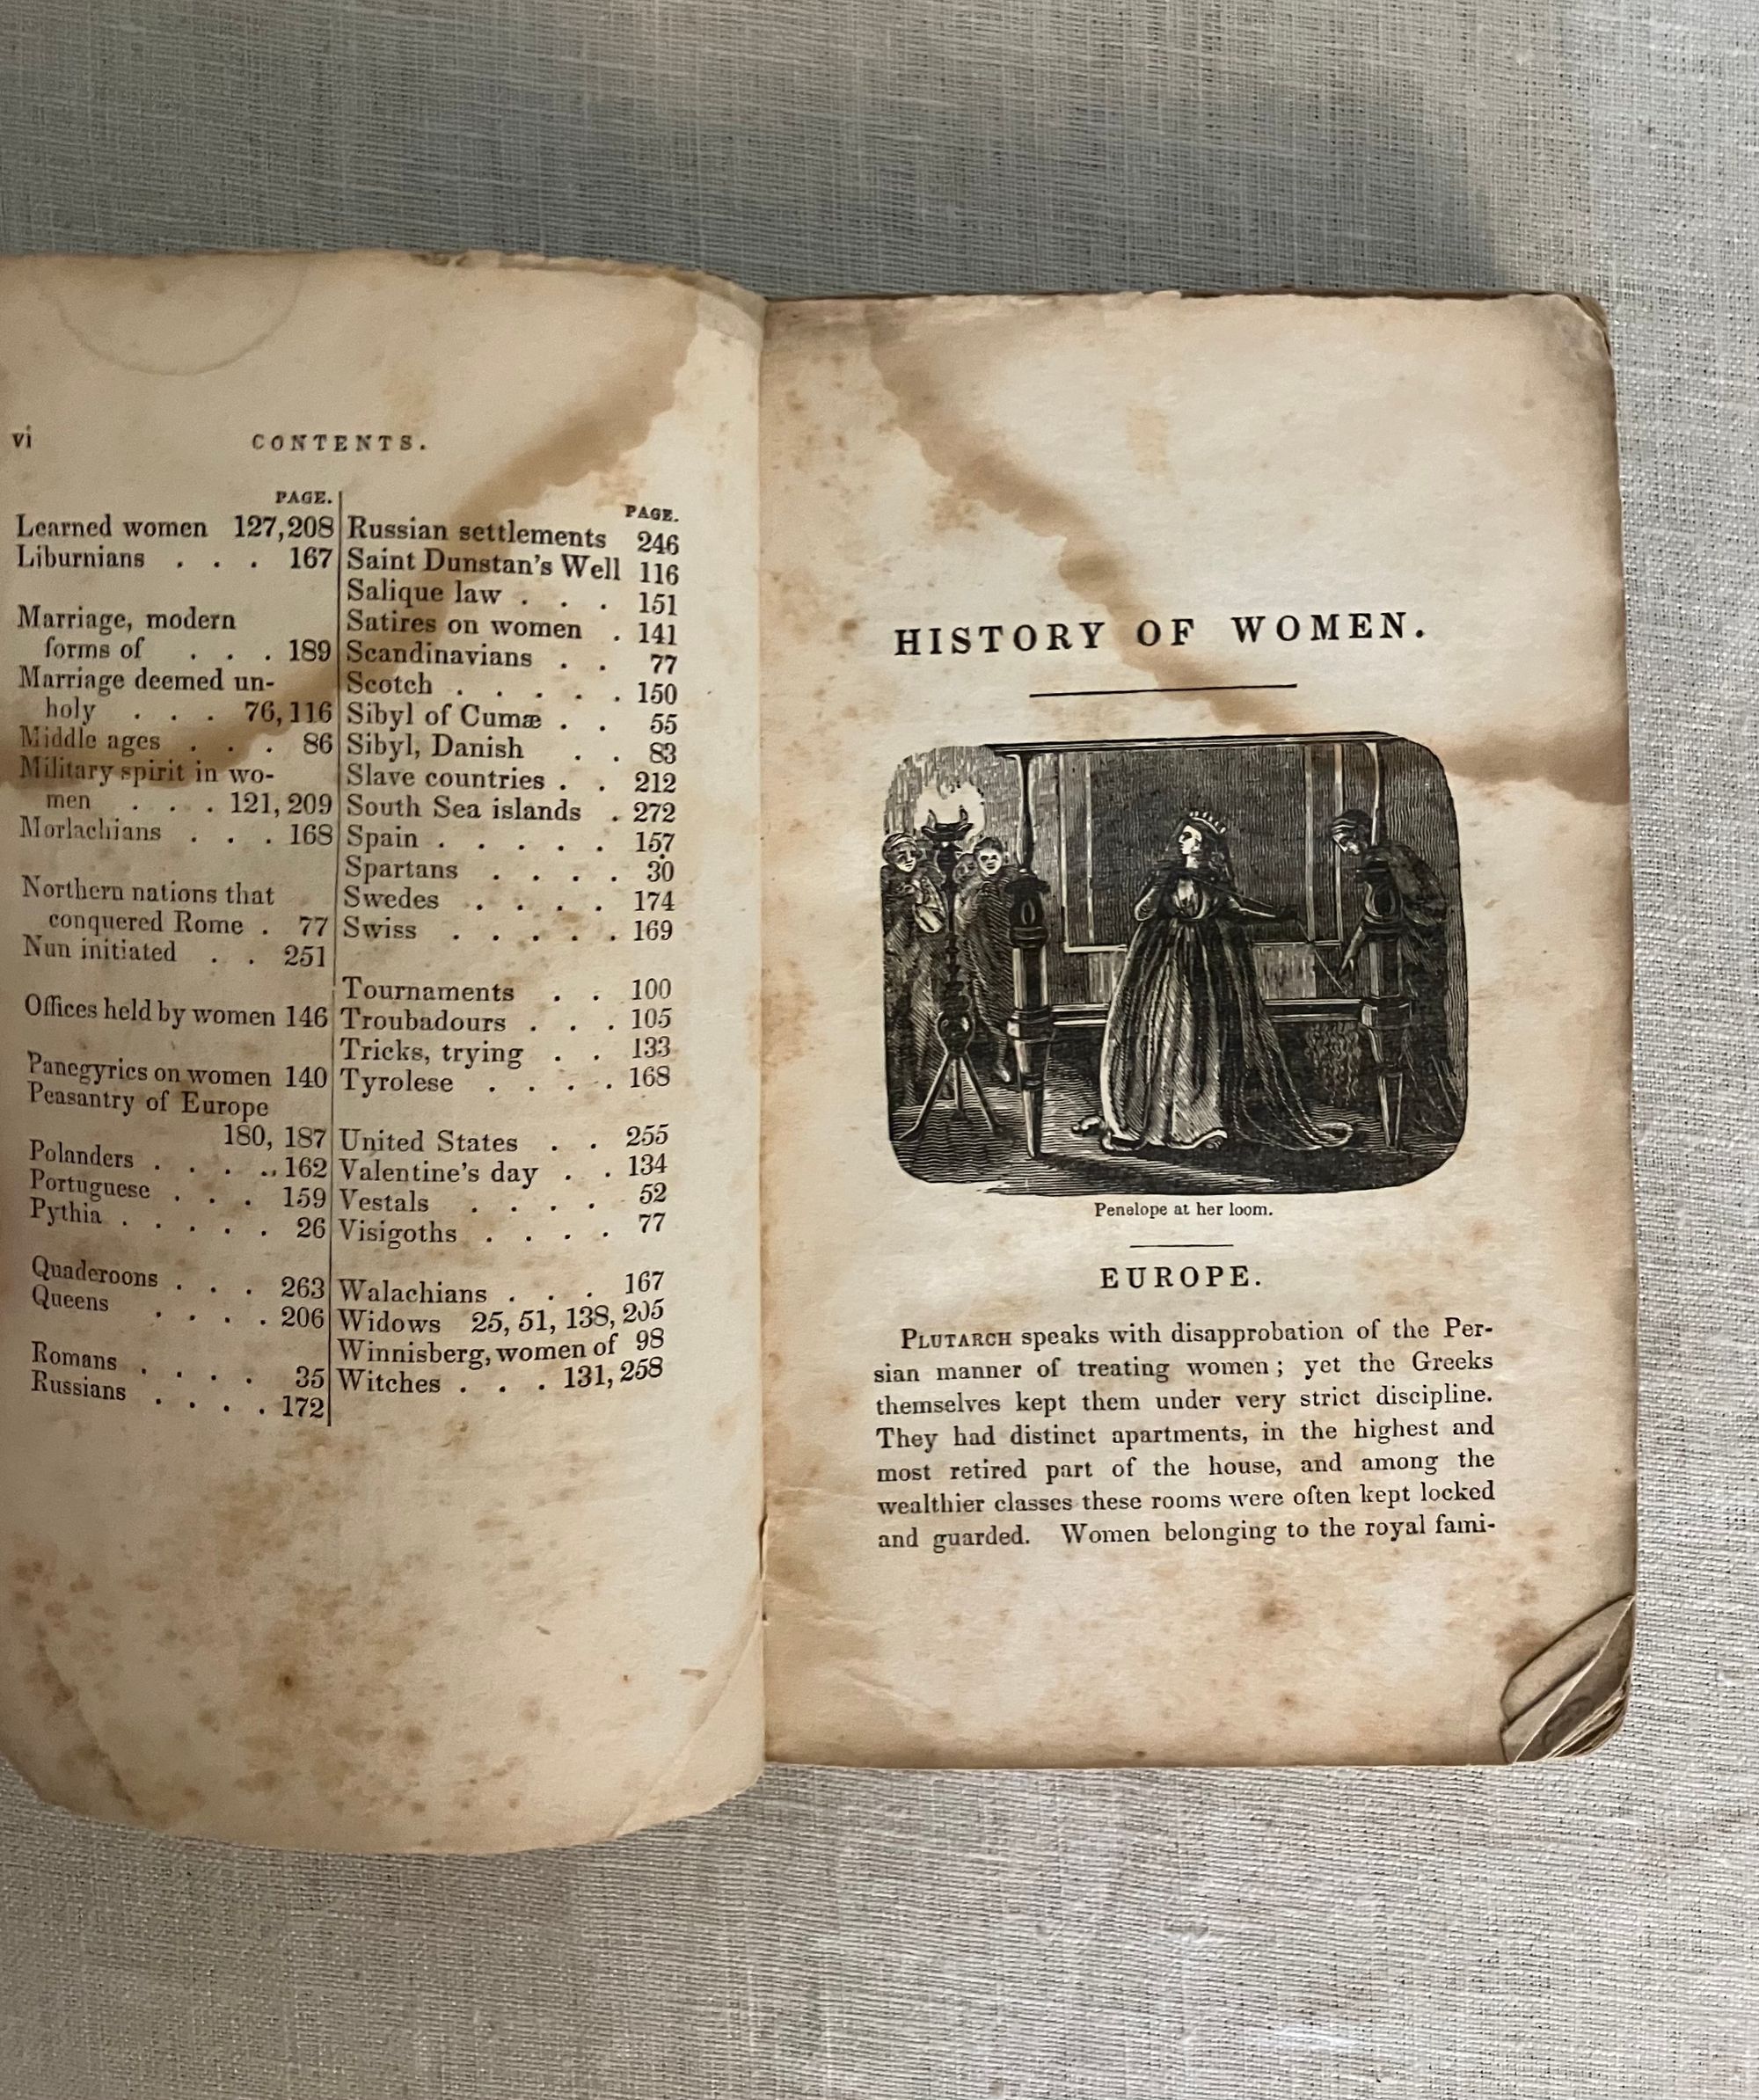 vi
CONTENTS.
PAGE.
Learned women 127,208
Liburnians . . . 167
Marriage, modern
forms of . . . 189
Marriage deemed un-
holy . . . 76,116
Middle ages . . . 86
Military spirit in wo-
men . . . 121, 209
Morlachians . . . 168
Northern nations that
conquered Rome . 77
Nun initiated . . 251
Offices held by women 146
Panegyrics on women 140
Peasantry of Europe
180, 187
Polanders . . . . 162
Portuguese . . . 159
Pythia . . . . . 26
Quaderoons . . . 263
Queens . . . . 206
Romans . . . . 35
Russians . . . . 172
PAGE.
Russian settlements 246
Saint Dunstan's Well 116
Salique law . . . 151
Satires on women . 141
Scandinavians . . 77
Scotch . . . . . 150
Sibyl of Cumæ . . 55
Sibyl, Danish . . 83
Slave countries . . 212
South Sea islands . 272
Spain . . . . . 157
Spartans . . . . 30
Swedes . . . . 174
Swiss . . . . . 169
Tournaments . . 100
Troubadours . . . 105
Tricks, trying . . 133
Tyrolese . . . . 168
United States . . 255
Valentine's day . . 134
Vestals . . . . 52
Visigoths . . . . 77
Walachians . . . 167
Widows 25, 51, 138, 205
Winnisberg, women of 98
Witches . . . 131, 258
HISTORY OF WOMEN.
Penelope at her loom.
EUROPE.
PLUTARCH speaks with disapprobation of the Per-
sian manner of treating women; yet the Greeks
themselves kept them under very strict discipline.
They had distinct apartments, in the highest and
most retired part of the house, and among the
wealthier classes these rooms were often kept locked
and guarded. Women belonging to the royal fami-